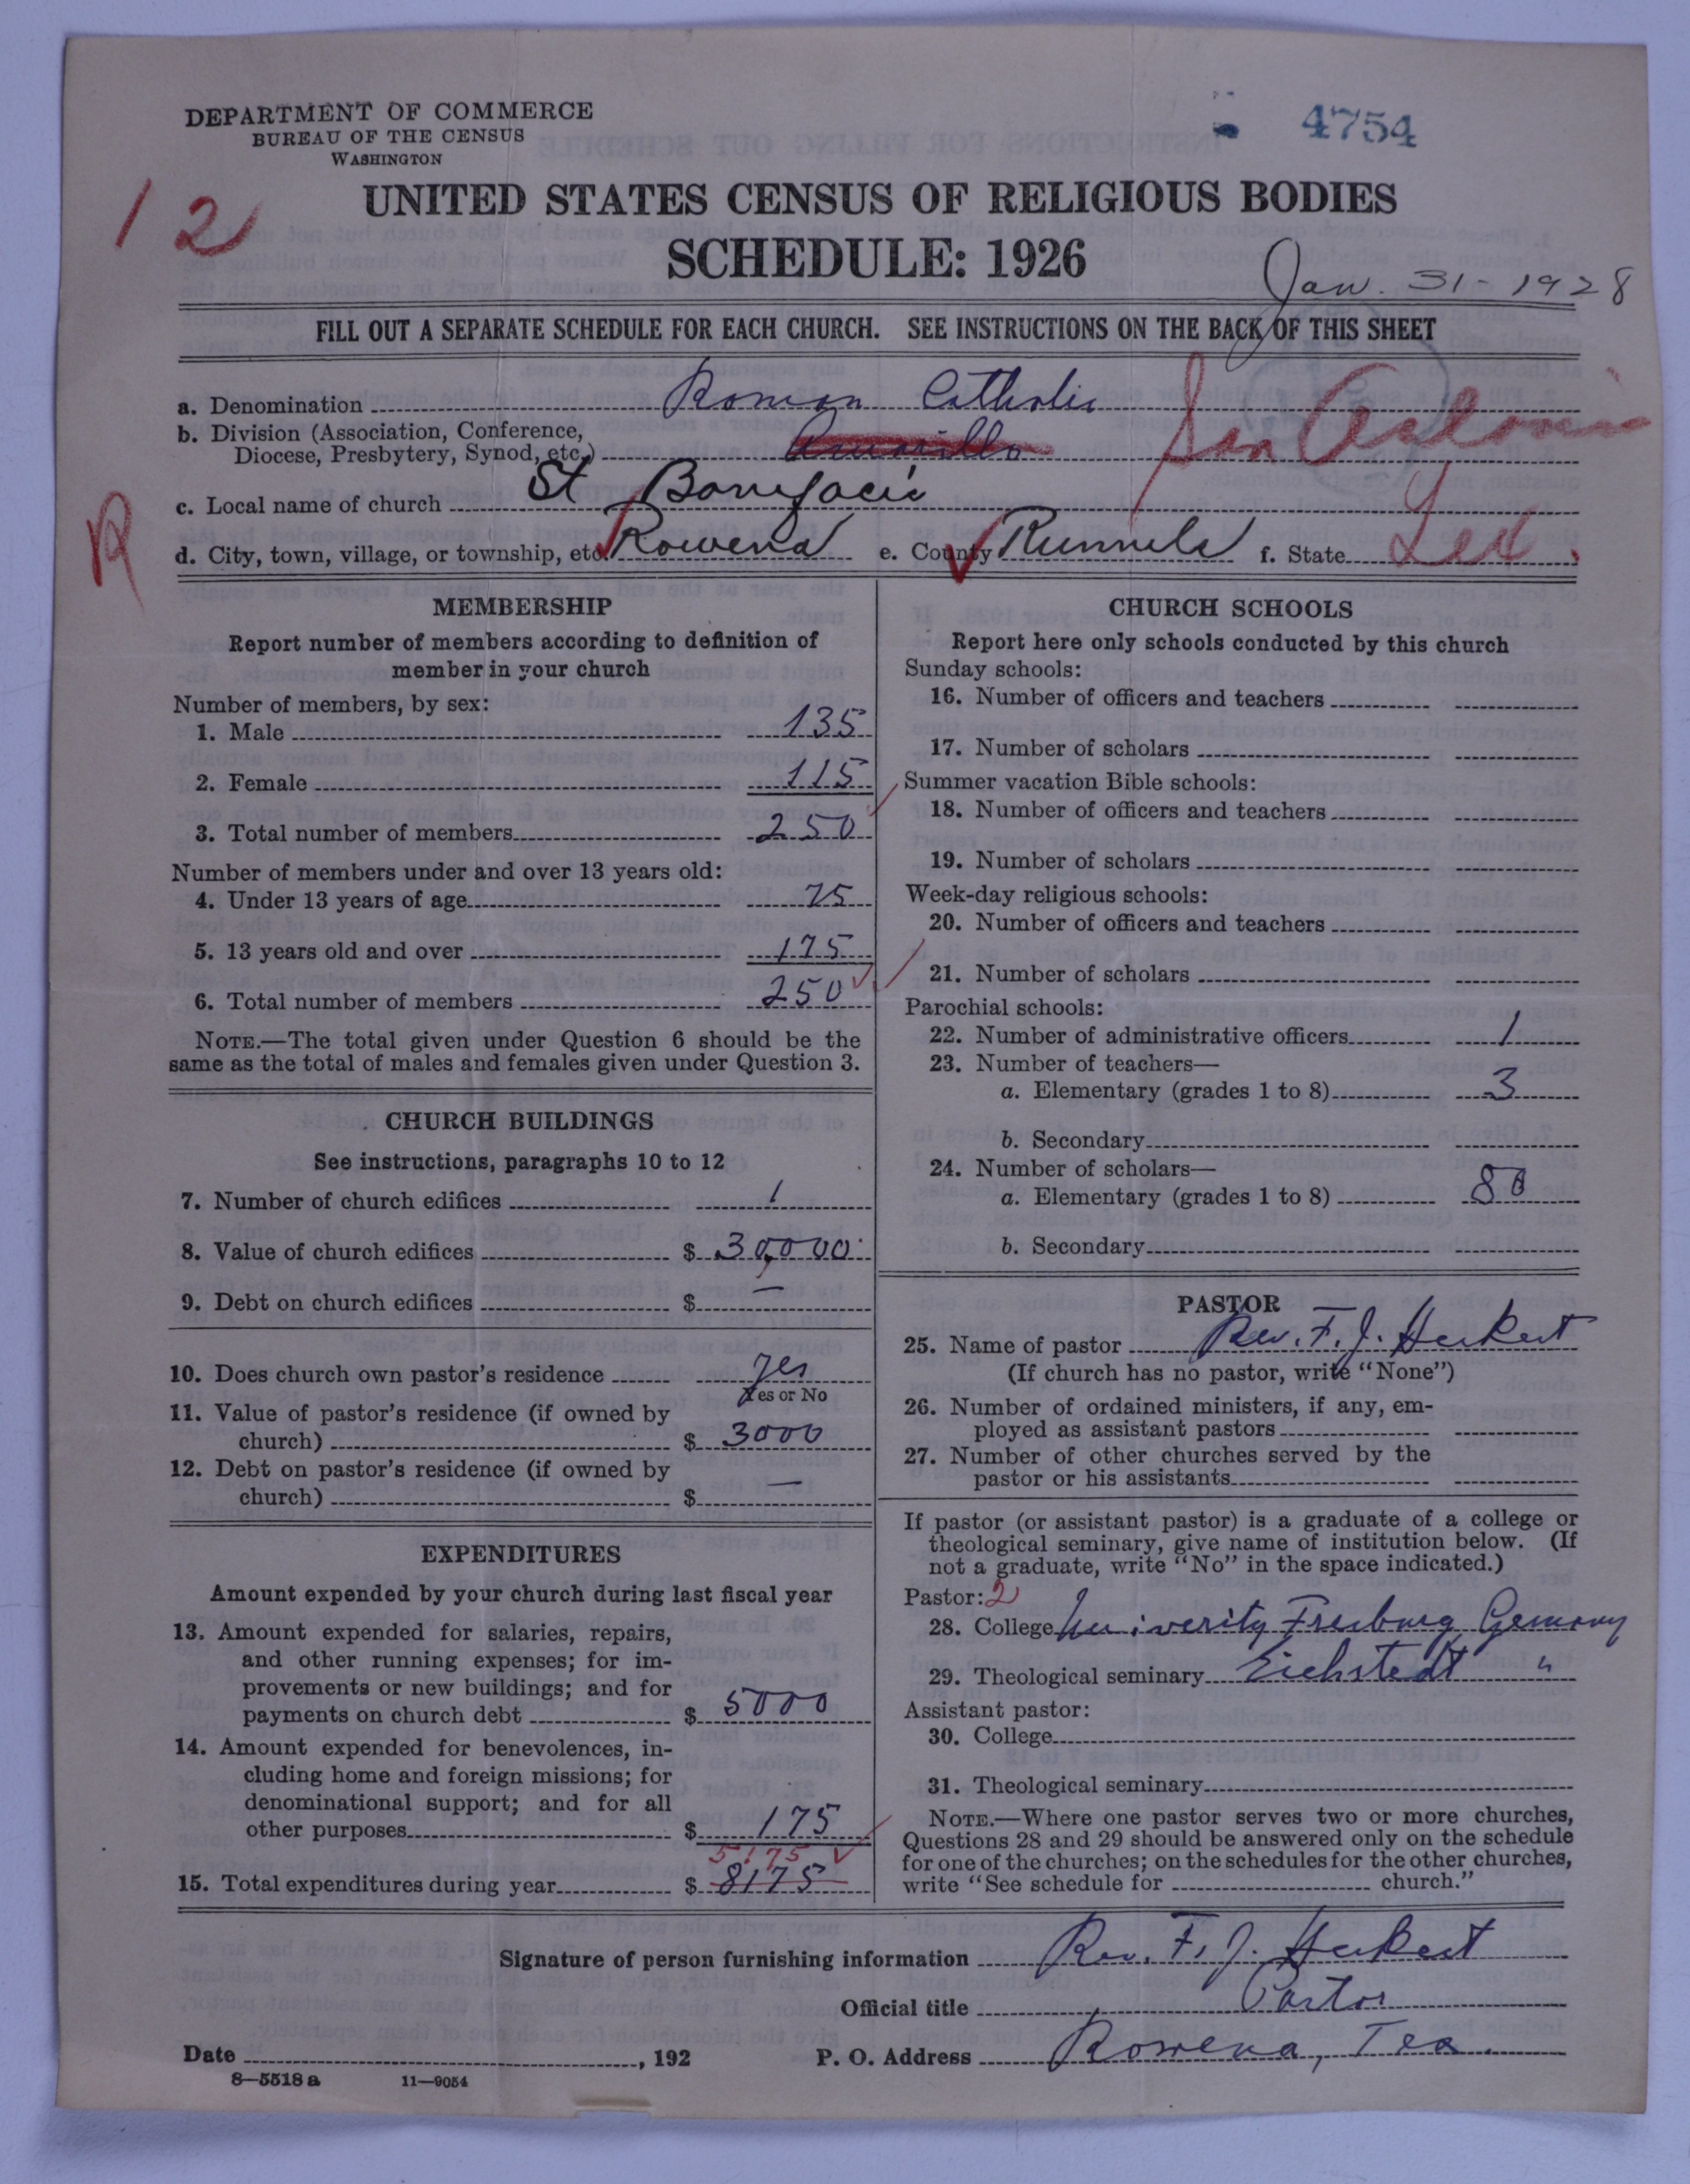 DEPARTMENT OF COMMERCE
BUREAU OF THE CENSUS
WASHINGTON
4754
12
UNITED STATES CENSUS OF RELIGIOUS BODIES
SCHEDULE: 1926
Jan. 31-1928
FILL OUT A SEPARATE SCHEDULE FOR EACH CHURCH. SEE INSTRUCTIONS ON THE BACK OF THIS SHEET
a. Denomination Roman Catholic
b. Division (Association, Conference,
Diocese, Presbytery, Synod, etc.) Amarillo San
c. Local name of church St Boniface
R
d. City, town, village, or township, etc. Rowena e. County Runnels f. State Tex.
MEMBERSHIP
Report number of members according to definition of
member in your church
Number of members, by sex:
1. Male 135
2. Female 115
3. Total number of members 250
Number of members under and over 13 years old:
4. Under 13 years of age 75
5. 13 years old and over 175
6. Total number of members 250
NOTE.—The total given under Question 6 should be the
same as the total of males and females given under Question 3.
CHURCH BUILDINGS
See instructions, paragraphs 10 to 12
7. Number of church edifices 1
8. Value of church edifices $ 30,000
9. Debt on church edifices $ —
10. Does church own pastor's residence yes
Yes or No
11. Value of pastor's residence (if owned by
church) $ 3000
12. Debt on pastor's residence (if owned by
church) $ —
EXPENDITURES
Amount expended by your church during last fiscal year
13. Amount expended for salaries, repairs,
and other running expenses; for im-
provements or new buildings; and for
payments on church debt $ 5000
14. Amount expended for benevolences, in-
cluding home and foreign missions; for
denominational support; and for all
other purposes $ 175
5175
15. Total expenditures during year $ 8175
CHURCH SCHOOLS
Report here only schools conducted by this church
Sunday schools:
16. Number of officers and teachers
17. Number of scholars
Summer vacation Bible schools:
18. Number of officers and teachers
19. Number of scholars
Week-day religious schools:
20. Number of officers and teachers
21. Number of scholars
Parochial schools:
22. Number of administrative officers 1
23. Number of teachers—
a. Elementary (grades 1 to 8) 3
b. Secondary
24. Number of scholars—
a. Elementary (grades 1 to 8) 80
b. Secondary
PASTOR
25. Name of pastor Rev. F. J.
(If church has no pastor, write "None")
26. Number of ordained ministers, if any, em-
ployed as assistant pastors
27. Number of other churches served by the
pastor or his assistants
If pastor (or assistant pastor) is a graduate of a college or
theological seminary, give name of institution below. (If
not a graduate, write "No" in the space indicated.)
Pastor: 2
28. College Univerity Freiburg Germany
29. Theological seminary Eichstedt "
Assistant pastor:
30. College
31. Theological seminary
NOTE.—Where one pastor serves two or more churches,
Questions 28 and 29 should be answered only on the schedule
for one of the churches; on the schedules for the other churches,
write "See schedule for church."
Signature of person furnishing information Rev. F. J.
Official title Pastor
Date , 192 P. O. Address Rowena, Tex.
8—5518 a 11—9054